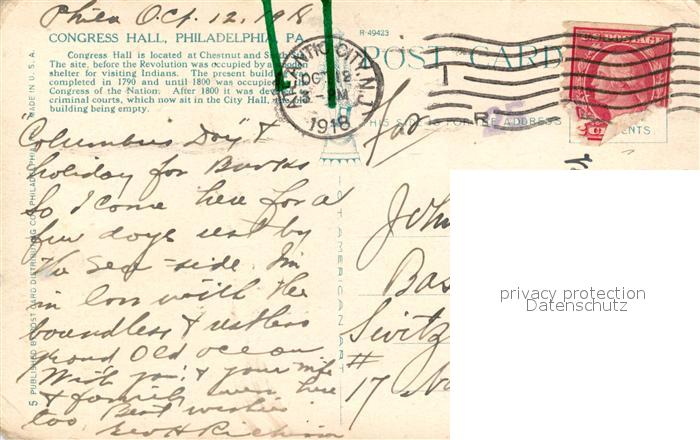 Phila Oct. 12, 1918
CONGRESS HALL, PHILADELPHIA, PA.
Congress Hall is located at Chestnut and
The site, before the Revolution was occupied by a wooden
shelter for visiting Indians. The present building
completed in 1790 and until 1800 was occupied
Congress of the Nation. After 1800 it was
criminal courts, which now sit in the City Hall, the old
building being empty.
"Columbus Day" &
holiday for Banks
So I come here for a
few days rest by
the sea-side. I'm
in love with the
boundless & restless
grand Old ocean
Wish you & your wife
& family were here
too Best wishes
Geo H
5 PUBLISHED BY POST CARD DISTRIBUTING CO., PHILADELPHIA
MADE IN U. S. A.
R-49423
POST CARD
ATLANTIC CITY, N.J.
OCT 12
PM
1918
THIS SIDE IS FOR THE ADDRESS
CENTS
AMERICAN ART
John
Bas
Switz
#
17
privacy protection
Datenschutz